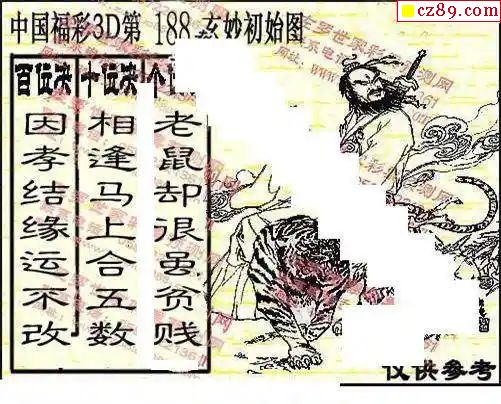 cz89.com
中国福彩3D第188玄妙初始图
百位决
因孝结缘运不改
十位决
相逢马上合五数
个
老鼠却很虽贫贱
仅供参考